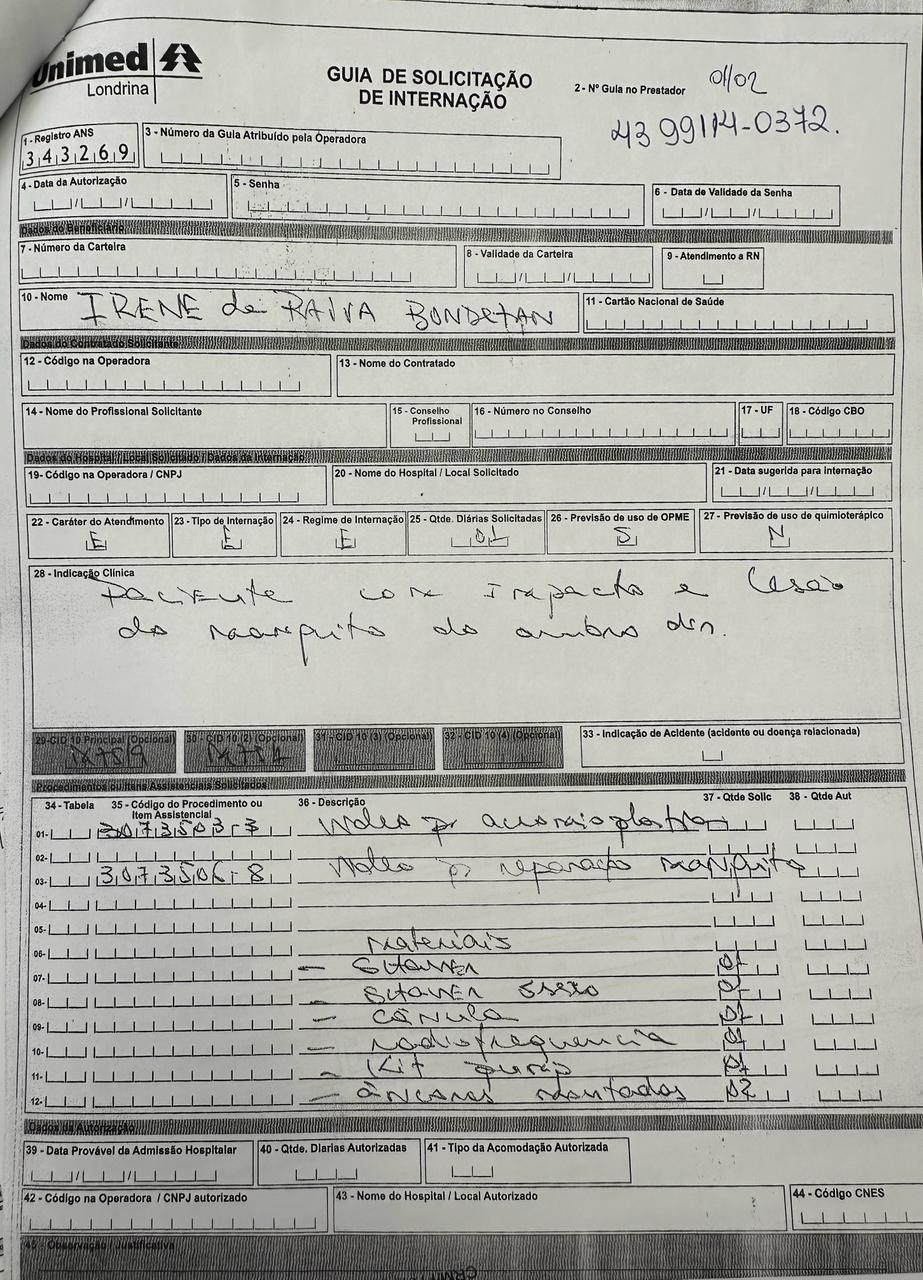 Unimed
Londrina
GUIA DE SOLICITAÇÃO
DE INTERNAÇÃO
2 - Nº Guia no Prestador
01/02
43 99114-0372.
1 - Registro ANS
343269
3 - Número da Guia Atribuído pela Operadora
4 - Data da Autorização
5 - Senha
6 - Data de Validade da Senha
Dados do Beneficiário
7 - Número da Carteira
8 - Validade da Carteira
9 - Atendimento a RN
10 - Nome
IRENE de PAIVA
11 - Cartão Nacional de Saúde
Dados do Contratado Solicitante
12 - Código na Operadora
13 - Nome do Contratado
14 - Nome do Profissional Solicitante
15 - Conselho
Profissional
16 - Número no Conselho
17 - UF
18 - Código CBO
Dados do Hospital / Local Solicitado / Dados da Internação
19- Código na Operadora / CNPJ
20 - Nome do Hospital / Local Solicitado
21 - Data sugerida para internação
22 - Caráter do Atendimento
E
23 - Tipo de Internação
E
24 - Regime de Internação
E
25 - Qtde. Diárias Solicitadas
01
26 - Previsão de uso de OPME
S
27 - Previsão de uso de quimioterápico
N
28 - Indicação Clínica
Paciente com Impacto e lesão
do manguito do ombro
29-CID 10 Principal (Opcional)
30 - CID 10 (2) (Opcional)
31 - CID 10 (3) (Opcional)
32 - CID 10 (4) (Opcional)
33 - Indicação de Acidente (acidente ou doença relacionada)
Procedimentos ou Itens Assistenciais Solicitados
34 - Tabela
35 - Código do Procedimento ou
Item Assistencial
36 - Descrição
37 - Qtde Solic
38 - Qtde Aut
01- 3073503-3 acromioplastia
02-
03- 3073506-8 manguito
04-
05-
06- Materiais
07- - Shaver 01
08- - Shaver ósseo 01
09- - cânula 01
10- - radiofrequencia 01
11- - Kit 01
12- - âncoras montadas 02
Dados da Autorização
39 - Data Provável da Admissão Hospitalar
40 - Qtde. Diarias Autorizadas
41 - Tipo da Acomodação Autorizada
42 - Código na Operadora / CNPJ autorizado
43 - Nome do Hospital / Local Autorizado
44 - Código CNES
45 - Observação / Justificativa